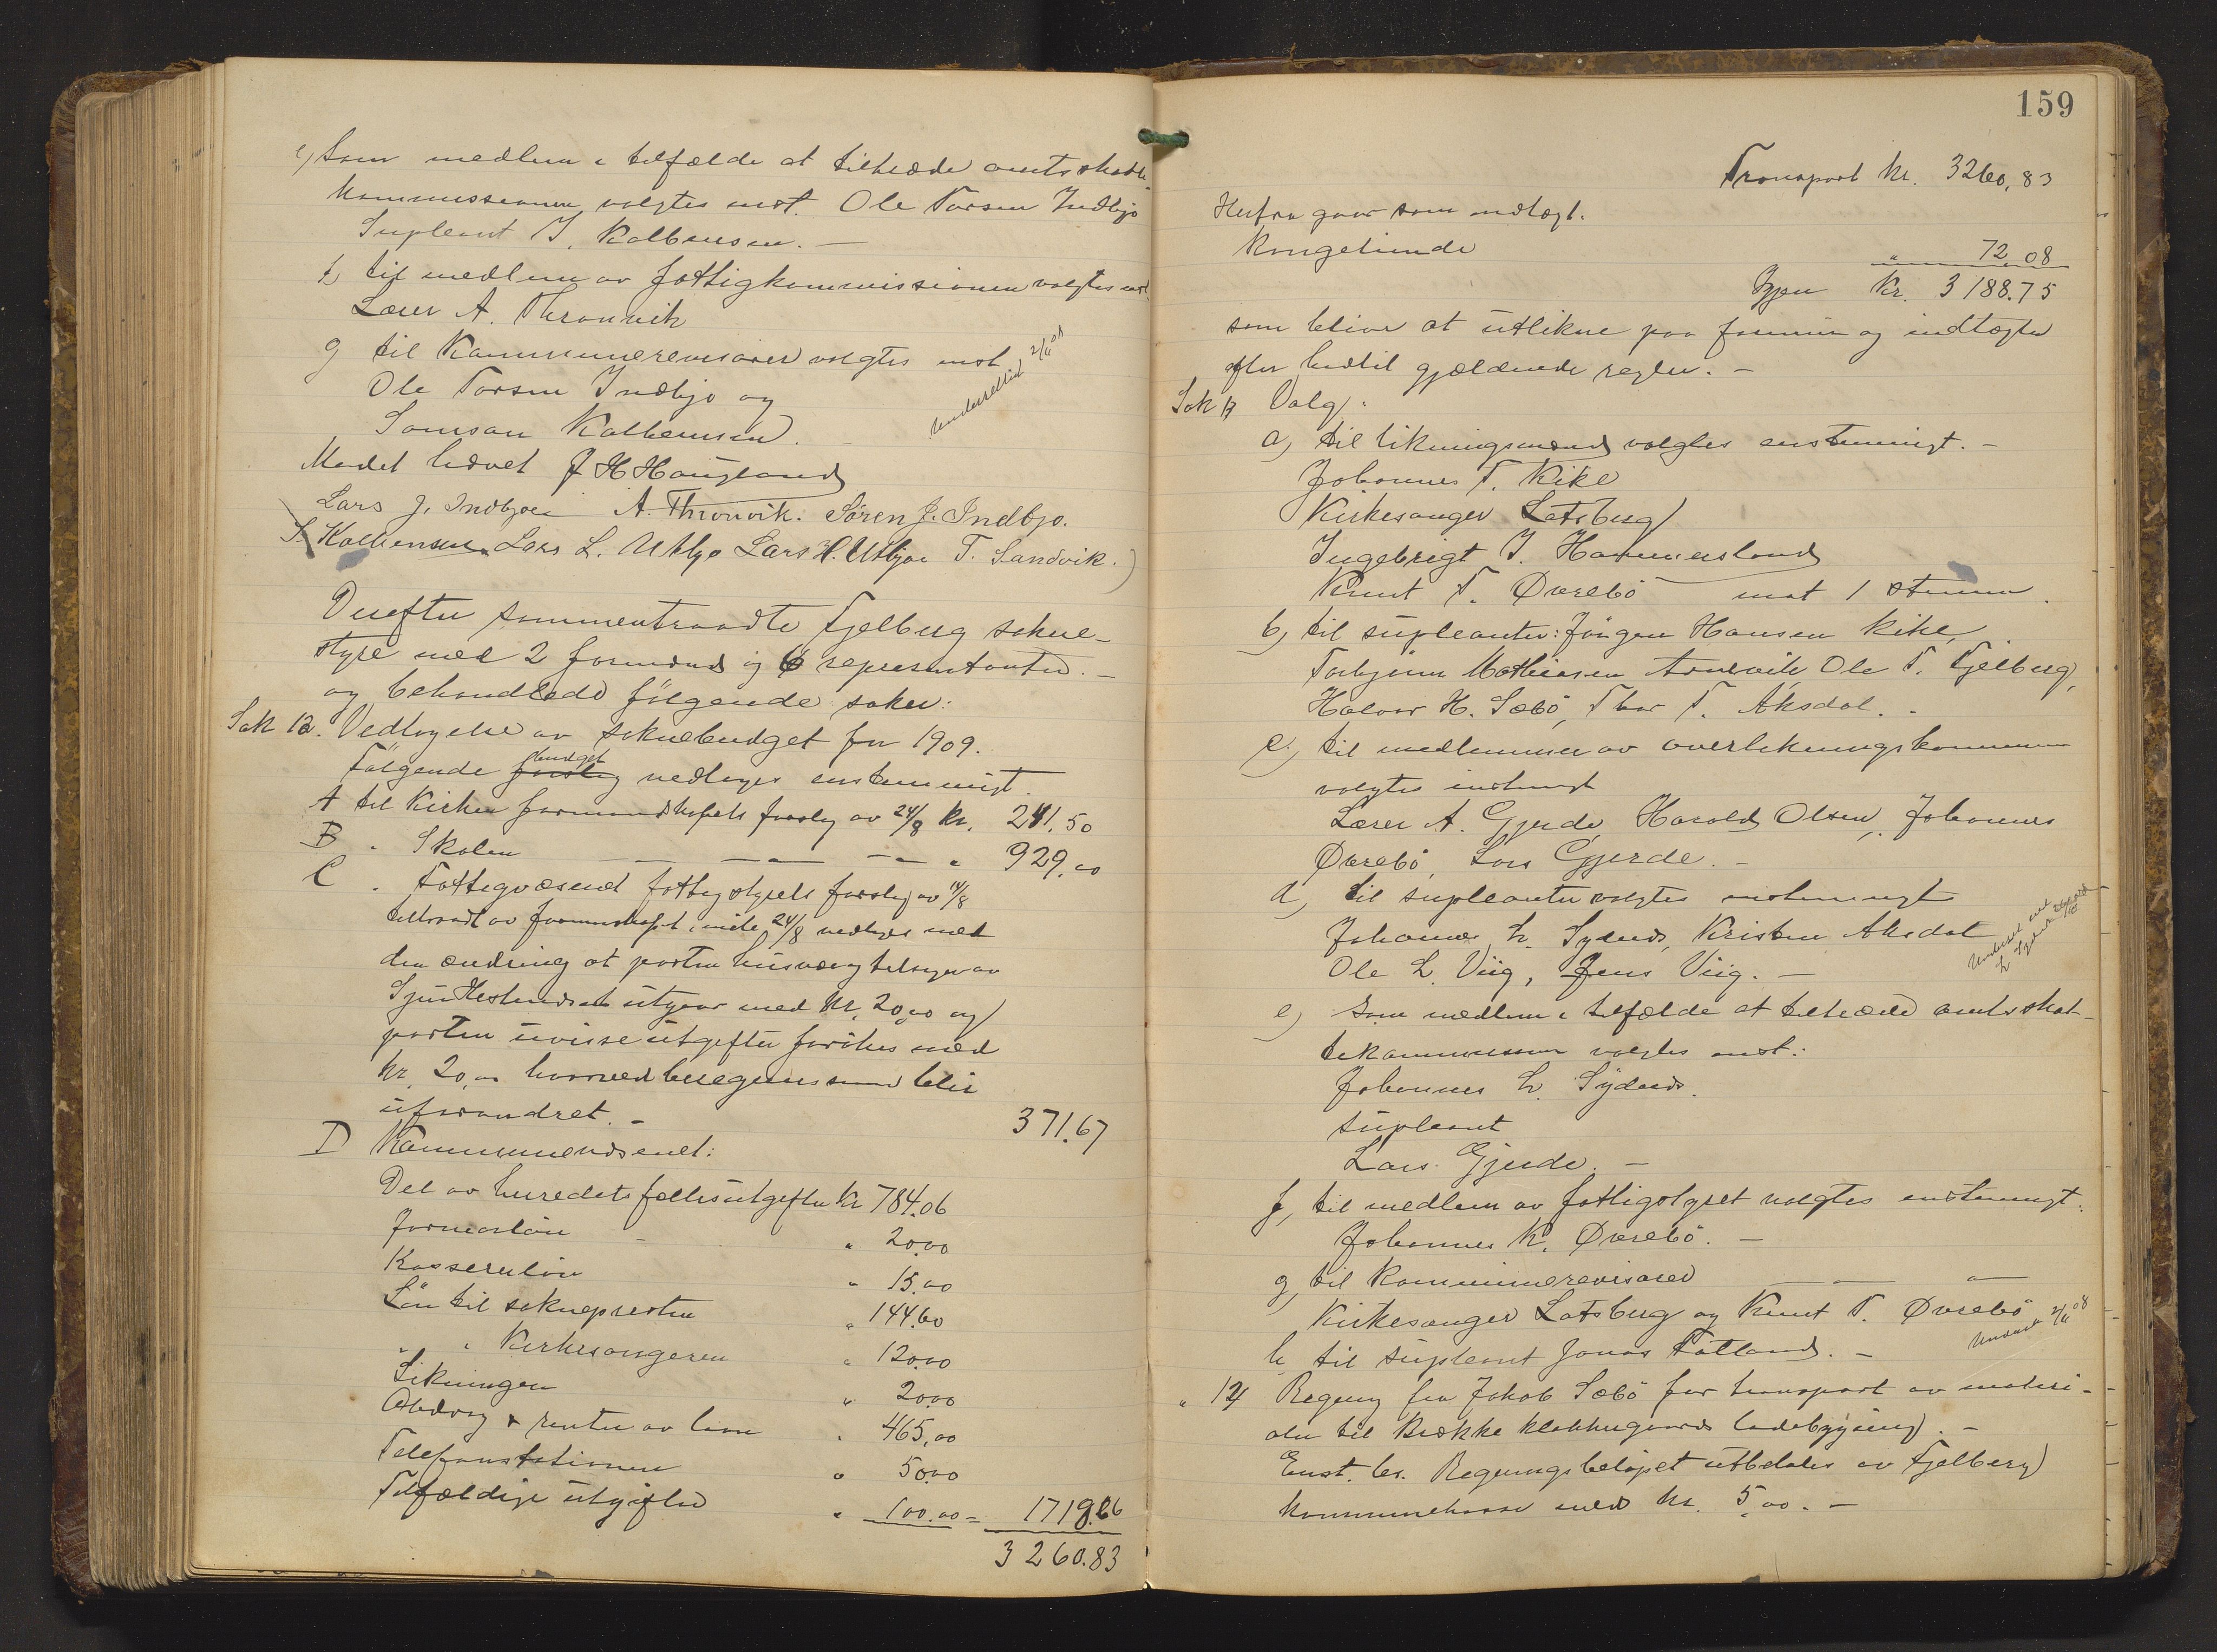 e) Som medlem i tilfælde at tiltræde amtsskatte-
kommissionen valgtes enst. Ole Torsen Indbjo
Supleant S. Kolbensen. —
f) til medlem av fattigkommissionen valgtes enst.
Lærer A. Thronvik
g til Kommunerevisorer valgtes enst.
Ole Torsen Indbjo og
Samson Kolbensen.
Underrettet 2/11 08
Mødet hævet J H Haugland
Lars J. Indbjoe A. Thronvik. Sören J. Indbjo.
S. Kolbensen Lars L. Utbjo Lars H. Utbjoe T. Sandvik.
Derefter sammentraadte Fjelberg sokne-
styre med 2 formænd og 6 representanter. —
og behandlede følgende saker:
Sak 12. Vedtagelse av soknebudget for 1909.
Følgende forslag budget vedtoges enstemmigt.
A til Kirken formandskapets forslag av 24/8 Kr. 241.50
B " Skolen — — — — — " 929.00
C " Fattigvæsenet fattigstyrets forslag av 14/8
tiltraadt av formandskapet i møte 24/8 vedtages med
den ændring at posten husvær og tilsyn av
Sjur Hestendsæt utgaar med kr. 20,00 og
posten uvisse utgifter forökes med
kr. 20,00 hvorved beregningssum blir
uforandret. — 371.67
D Kommunevæsenet:
Del av herredets fællesutgifter Kr 784.06
Formanlön — " 20.00
Kassererlön " 15.00
Lön til sokneprester " 144.60
" " Kirkesangeren " 120.00
Likningen " 20.00
Avdrag & renter av laan " 465,00
Telefonstationen " 50.00
Tilfældige utgifter " 100.00 = 1718.66
3260.83
159
Transport kr. 3260,83
Herfra gaar som indtægt.
Kongetiende " 72,08
Igjen Kr. 3188.75
som bliver at utlikne paa formue og indtægter
efter hertil gjældende regler. —
Sak 13 Valg.
a) til likningsmænd valgtes enstemmigt. —
Johannes T. Kike
Kirkesanger Latsberg
Ingebrigt I. Hammersland
Knut T. Øvrebö mot 1 stemme.
b) til supleanter: Jörgen Hansen Kike,
Torbjörn Mathiasen Arnevik, Ole T. Fjelberg,
Halvor H. Sæbö, Thor T. Aksdal.
c.) til medlemmer av overlikningskommissionen
valgtes enstemmigt
Lærer A. Gjerde, Harald Olsen, Johannes
Øvrebö, Lars Gjerde. —
d) til supleanter valgtes enstemmigt
Johannes L. Sydnes, Kristen Aksdal
Ole L. Viig, Jens Viig. —
e) Som medlem i tilfælde at tiltræde amtsskat-
tekommissionen valgtes enst.:
Johannes L. Sydnes.
supleant
Lars Gjerde. —
f, til medlem av fattigstyret valgtes enstemmigt.
Johannes K. Øvrebö. —
g, til Kommunerevisorer — — —
Kirkesanger Latsberg og Knut T. Øvrebö
2/11 08
h, til supleant Jonas Fatland. —
" 14 Regning fra Jakob Sæbö for transport av materi-
aler til Brække klokkergaards ladebygning. —
Enst. bes. Regningsbeløpet utbetales av Fjelberg
kommunekasse med kr. 5,00. —